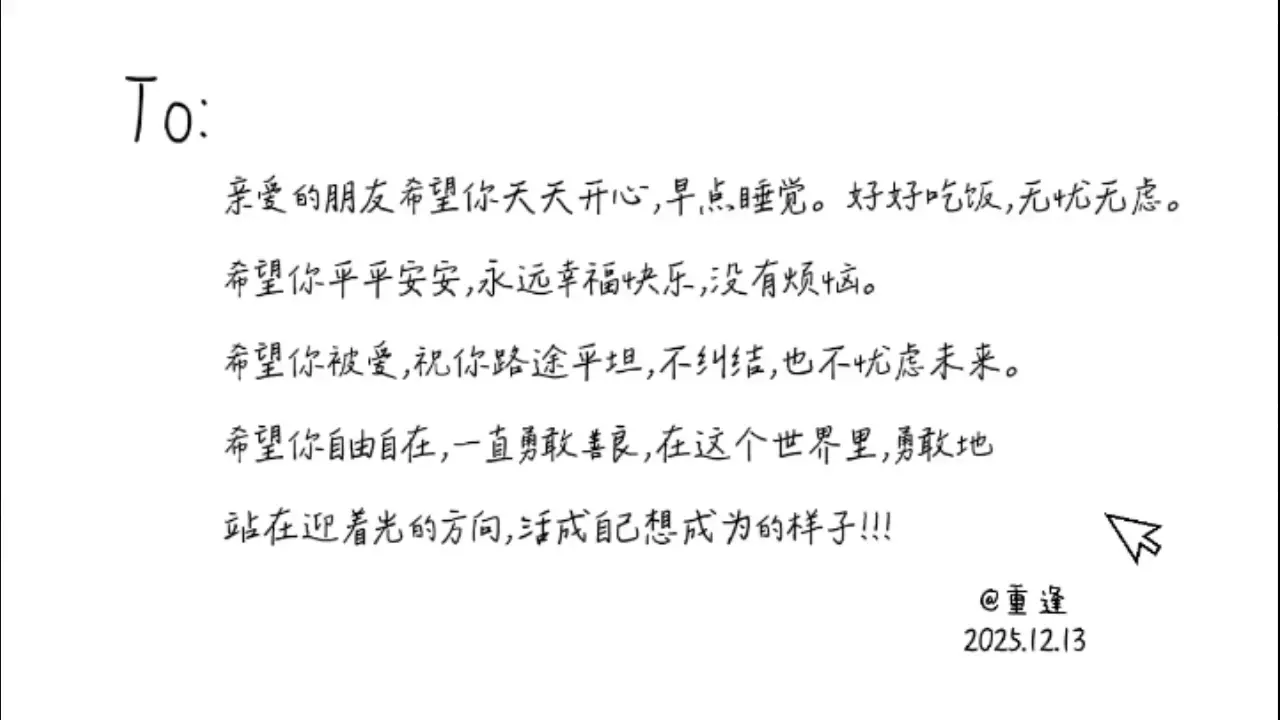 To:
亲爱的朋友希望你天天开心,早点睡觉。好好吃饭,无忧无虑。
希望你平平安安,永远幸福快乐,没有烦恼。
希望你被爱,祝你路途平坦,不纠结,也不忧虑未来。
希望你自由自在,一直勇敢善良,在这个世界里,勇敢地
站在迎着光的方向,活成自己想成为的样子!!!
@重逢
2025.12.13